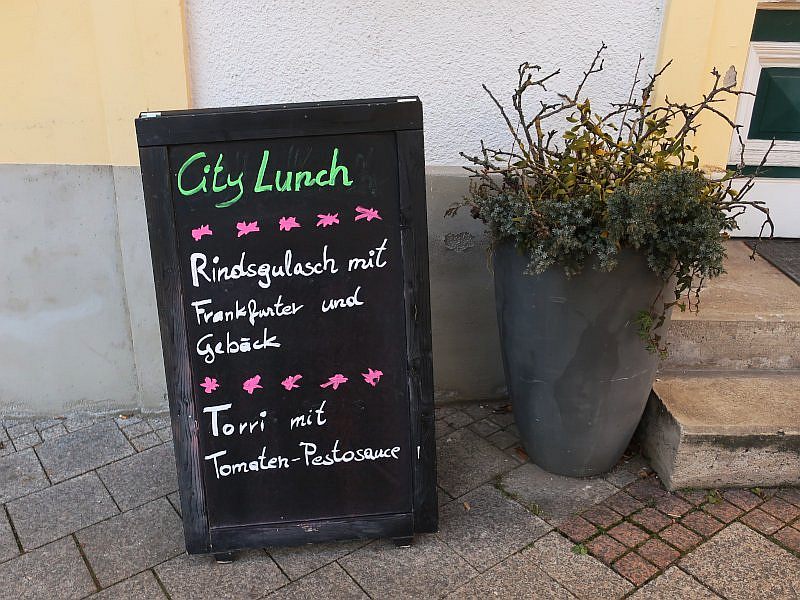 City Lunch
Rindsgulasch mit
Frankfurter und
Gebäck
Torri mit
Tomaten-Pestosauce